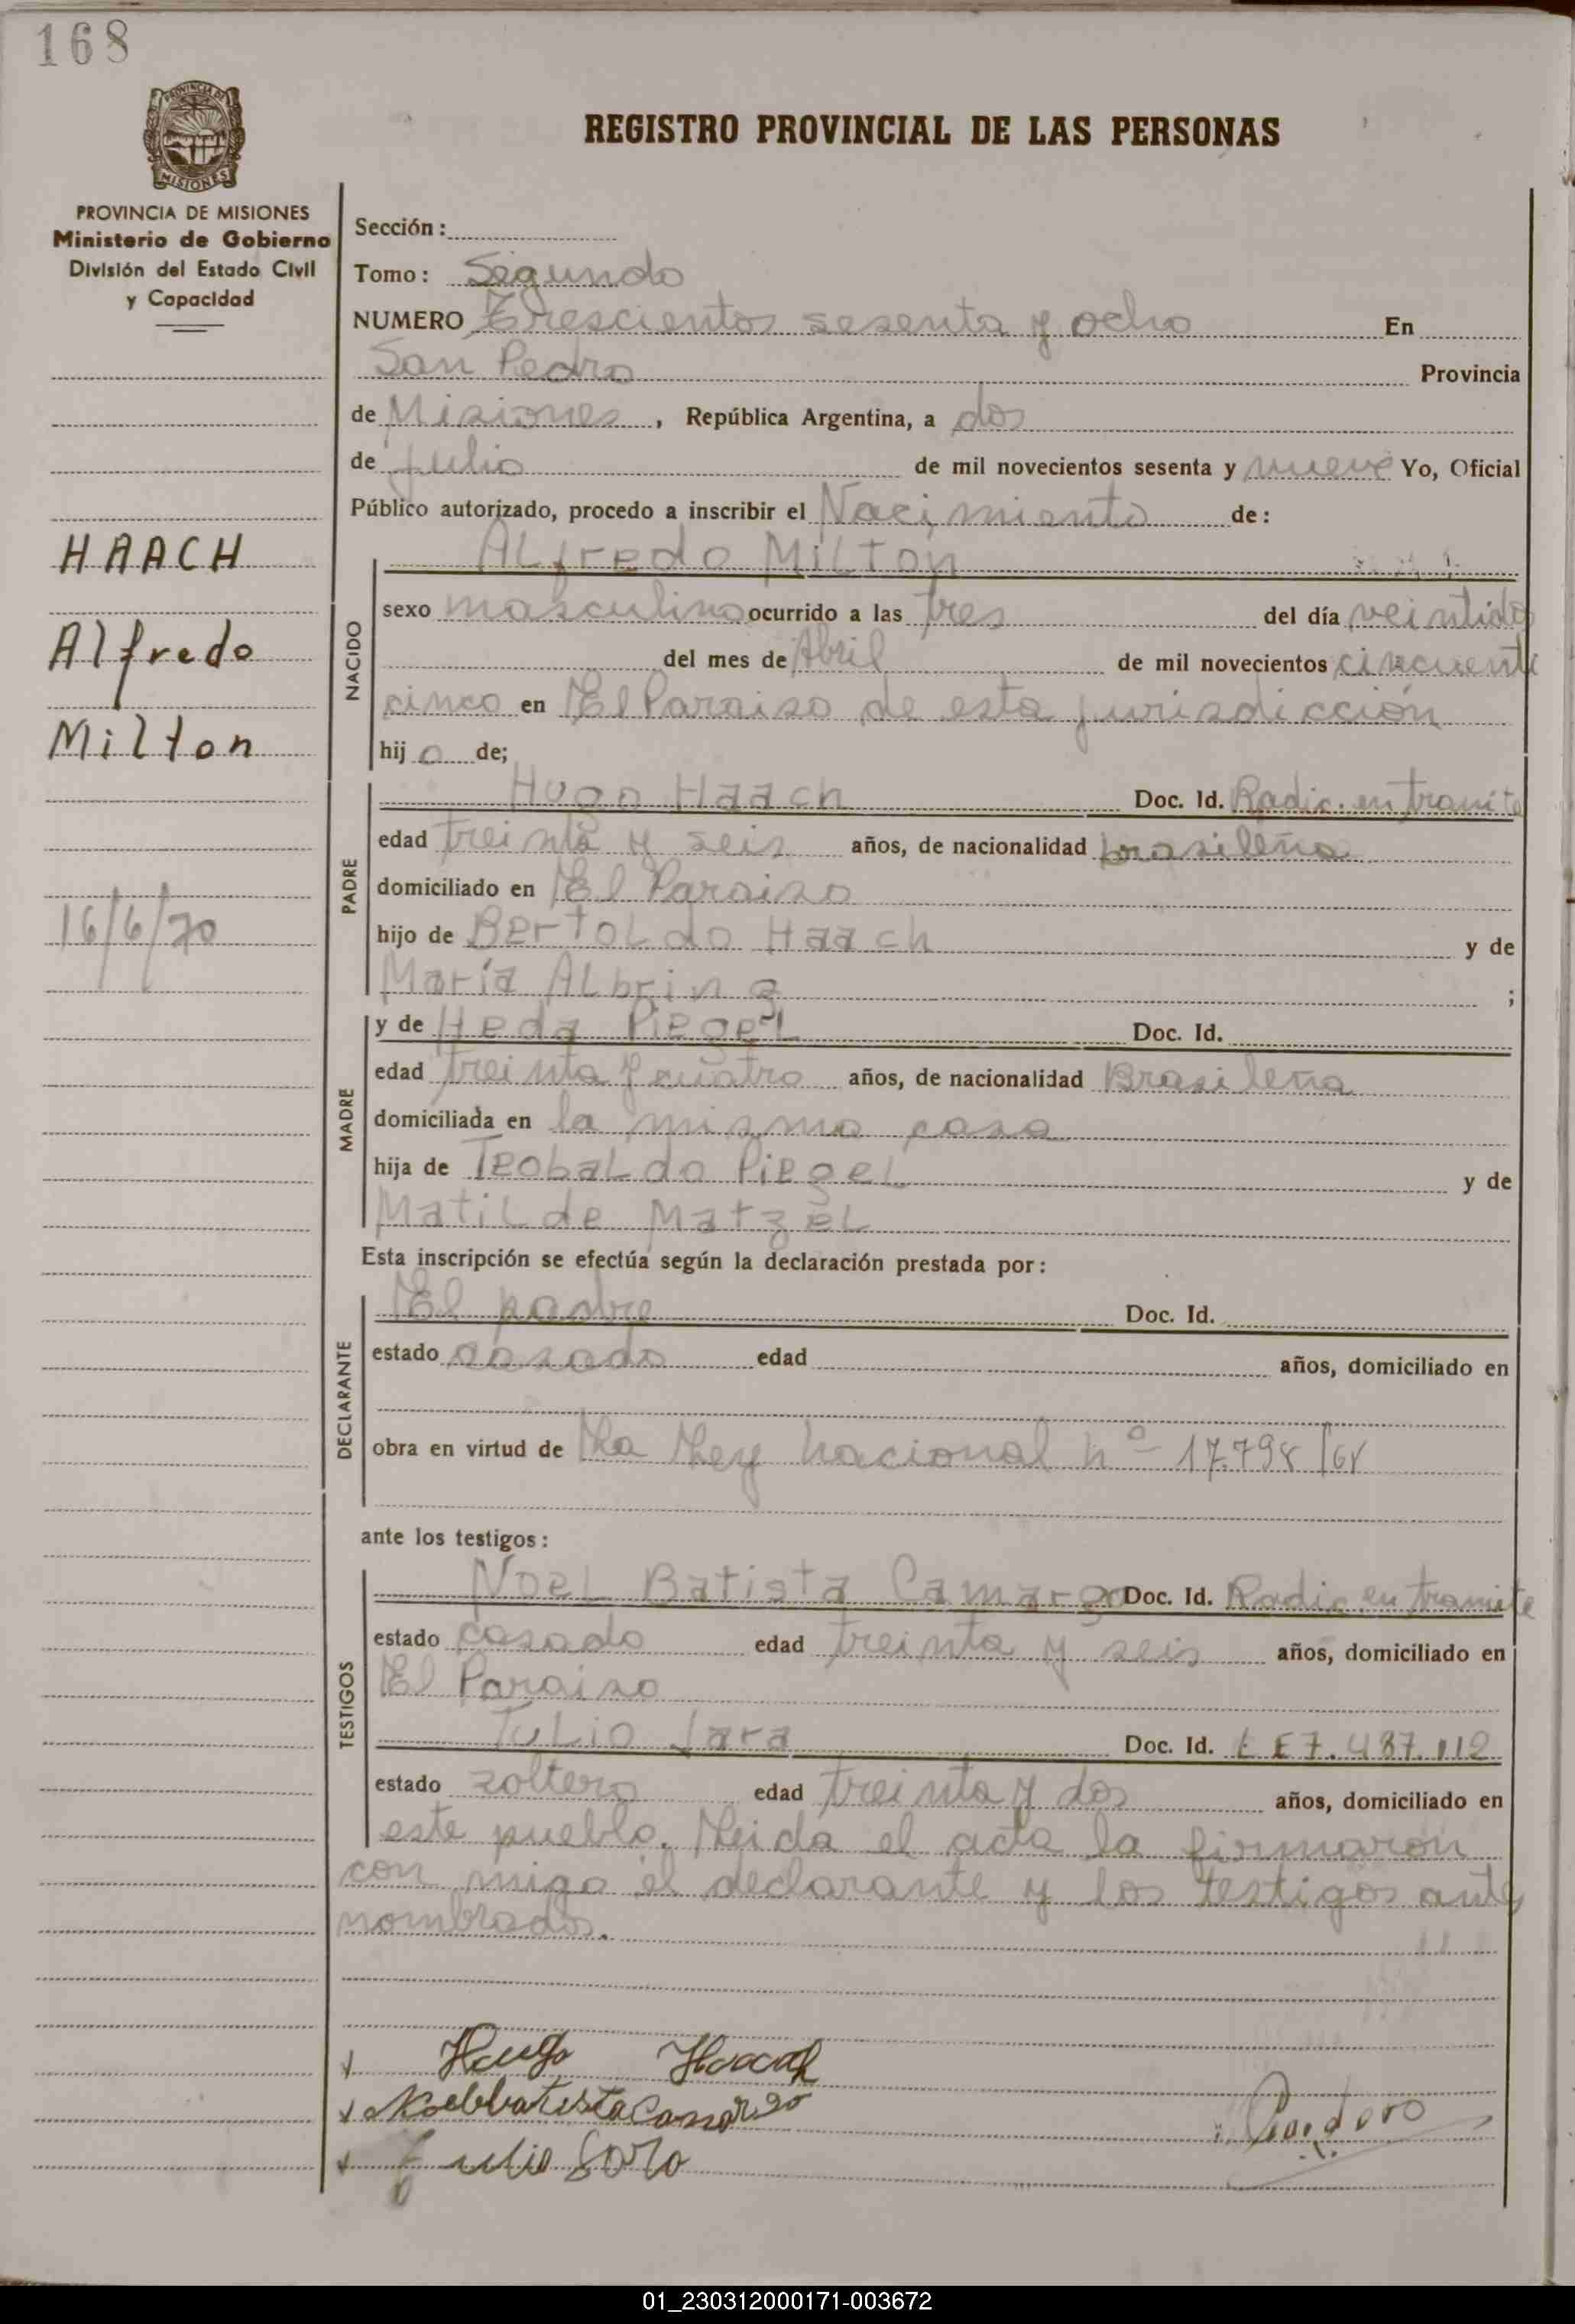 168
PROVINCIA DE MISIONES
Ministerio de Gobierno
División del Estado Civil
y Capacidad
REGISTRO PROVINCIAL DE LAS PERSONAS
Sección:
Tomo: Segundo
NUMERO Trescientos sesenta y ocho En
San Pedro Provincia
de Misiones, República Argentina, a dos
de julio de mil novecientos sesenta y nueve Yo, Oficial
Público autorizado, procedo a inscribir el Nacimiento de:
HAACH
Alfredo
Milton
16/6/70
NACIDO
ALfredo MiLTon
sexo masculino ocurrido a las tres del día veintidos
del mes de Abril de mil novecientos cincuenti
cinco en El Paraiso de esta jurisdicción
hijo de;
PADRE
Hugo Haach Doc. Id. Radic. en tramite
edad treinta y seis años, de nacionalidad brasileña
domiciliado en El Paraiso
hijo de BertoLdo Haach y de
María ALbring ;
MADRE
y de Heda PiegeL Doc. Id.
edad treinta y cuatro años, de nacionalidad Brasileña
domiciliada en la misma casa
hija de TeobaLdo PiegeL y de
MatiLde MatzeL
Esta inscripción se efectúa según la declaración prestada por:
DECLARANTE
El padre Doc. Id.
estado casado edad años, domiciliado en
obra en virtud de La Ley Nacional nº 17.798/68
ante los testigos:
TESTIGOS
NoeL Batista Camargo Doc. Id. Radic. en tramite
estado casado edad treinta y seis años, domiciliado en
El Paraiso
JuLio Jara Doc. Id. L E 7.487.112
estado zoltero edad treinta y dos años, domiciliado en
este pueblo. Leida el acta la firmaron
con migo el declarante y los testigos ante
nombrados.
Hugo Haach
Noelbatista Camargo
Julio
01_230312000171-003672